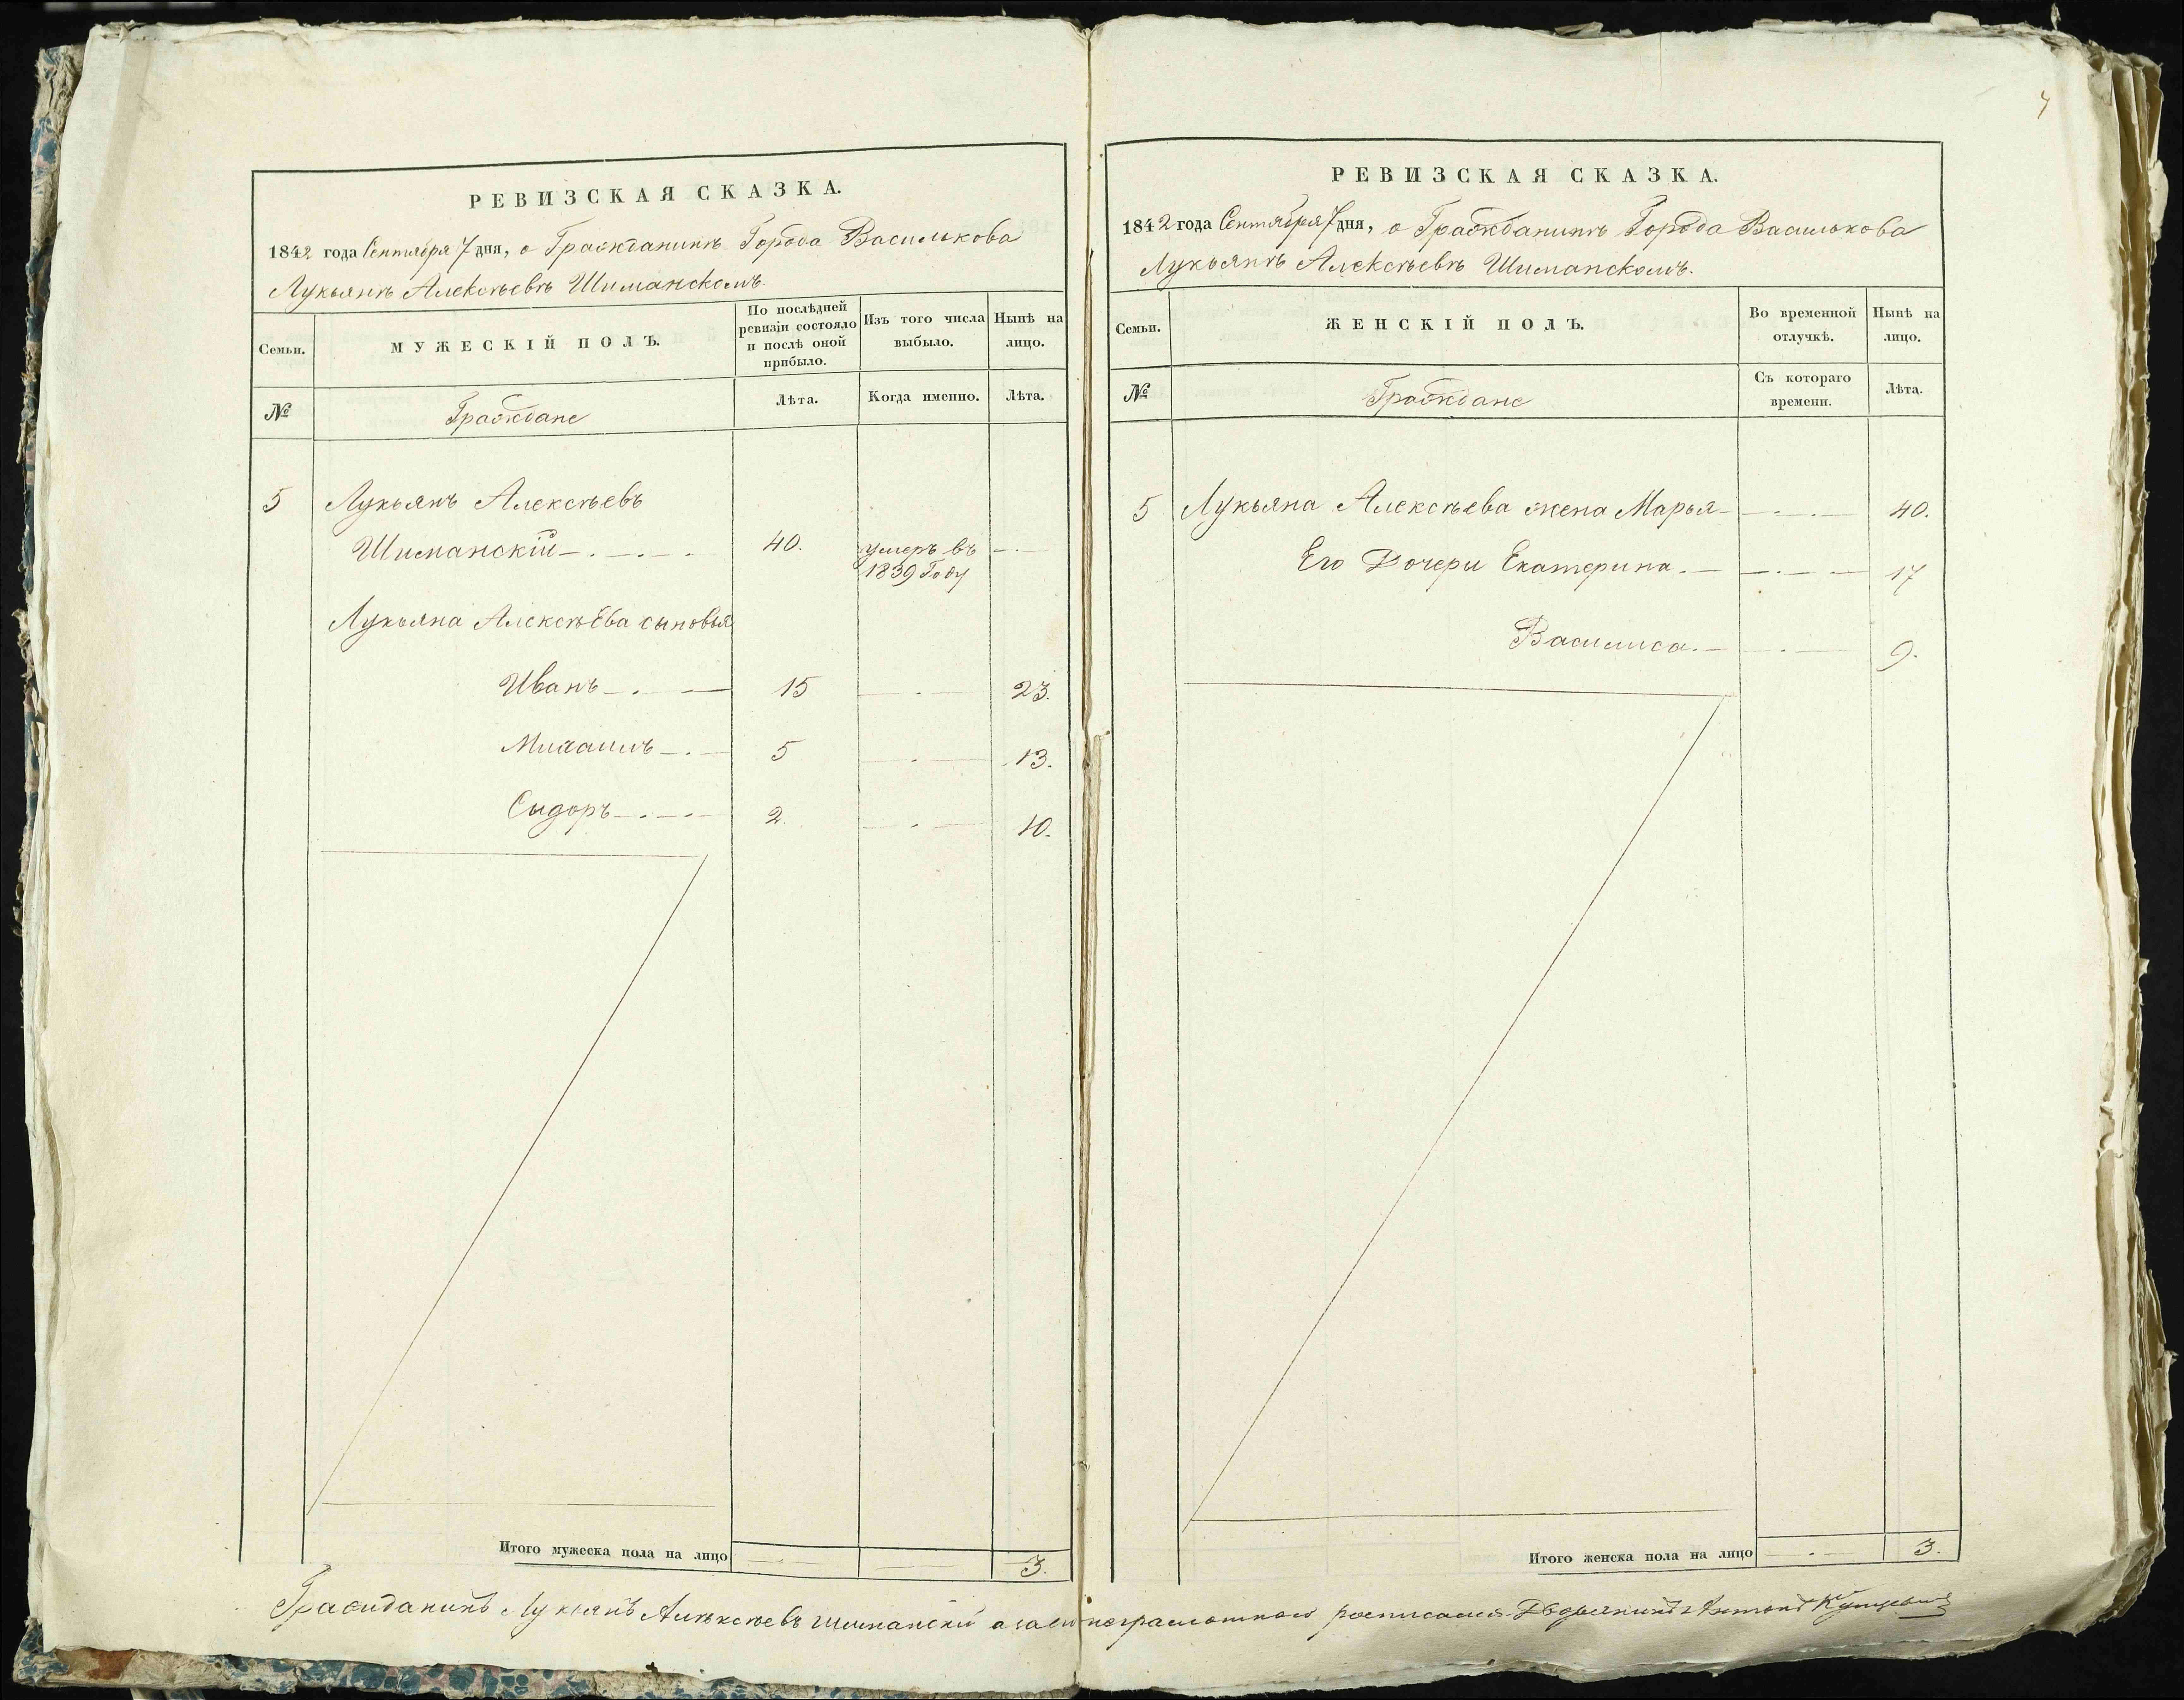 7
РЕВИЗСКАЯ СКАЗКА.
1842 года Сентября 7 дня, о Гражданинѣ Города Василькова
Лукьянѣ Алексѣевѣ Шиманскомъ.
Семьи.
МУЖЕСКІЙ ПОЛЪ.
По послѣдней
ревизіи состояло
и послѣ оной
прибыло.
Изъ того числа
выбыло.
Нынѣ на
лицо.
№
Граждане
Лѣта.
Когда именно.
Лѣта.
5 Лукьянъ Алексѣевъ
Шиманскій 40. умеръ въ
1839 Году
Лукьяна Алексѣева сыновья
Иванъ 15 23.
Михаилъ 5 13.
Сыдоръ 2. 10.
Итого мужеска пола на лицо 3.
РЕВИЗСКАЯ СКАЗКА.
1842 года Сентября 7 дня, о Гражданинѣ Города Василькова
Лукьянѣ Алексѣевѣ Шиманскомъ.
Семьи.
ЖЕНСКІЙ ПОЛЪ.
Во временной
отлучкѣ.
Нынѣ на
лицо.
№
Граждане
Съ котораго
времени.
Лѣта.
5 Лукьяна Алексѣева жена Марья 40.
Его Дочери Екатерина. 17
Василиса. 9.
Итого женска пола на лицо 3.
Гражданинъ Лукьянъ Алексѣевъ Шиманскій а неграмотного росписался Дворянинъ Антонъ